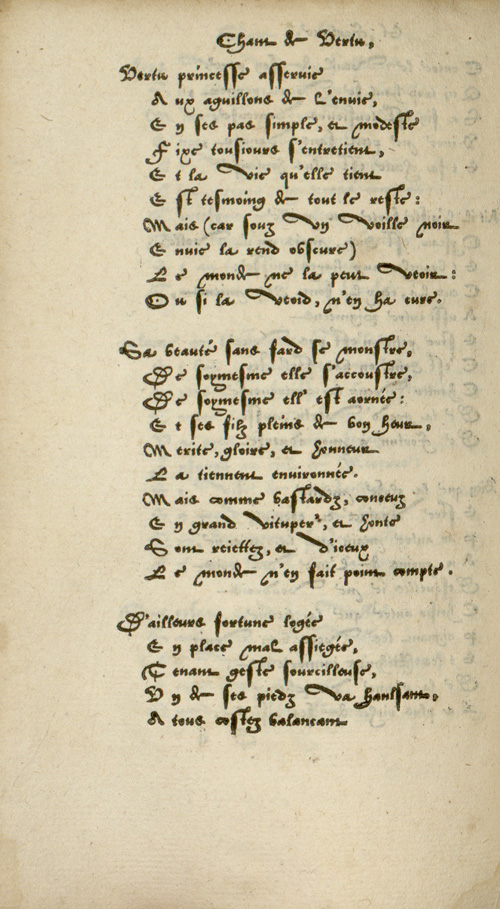 Chant de Vertu,
Vertu princesse asservie
A ux aguillons de L'envie,
E n ses pas simple, et modeste
F ixe tousiours s'entretient,
E t la vie qu'elle tient
E st tesmoing de tout le reste:
M ais (car souz vn voille noir
E nuie la rend obscure)
L e monde ne la peut veoir:
O u si la veoid, n'en ha cure.
Sa beauté sans fard se monstre,
D e soymesme elle s'accoustre,
D e soymesme ell' est aornée:
E t ses filz pleins de bon heur,
M erite, gloire, et honneur
L a tiennent environnée.
M ais comme bastardz, conceuz
E n grand vitupere, et honte
S ont reiettez, et d'iceux
L e monde n'en fait point compte.
D'ailleurs fortune logée
E n place mal assiegée,
T enant geste sourcilleuse,
V n de ses piedz va haulsant,
A tous costez balancant